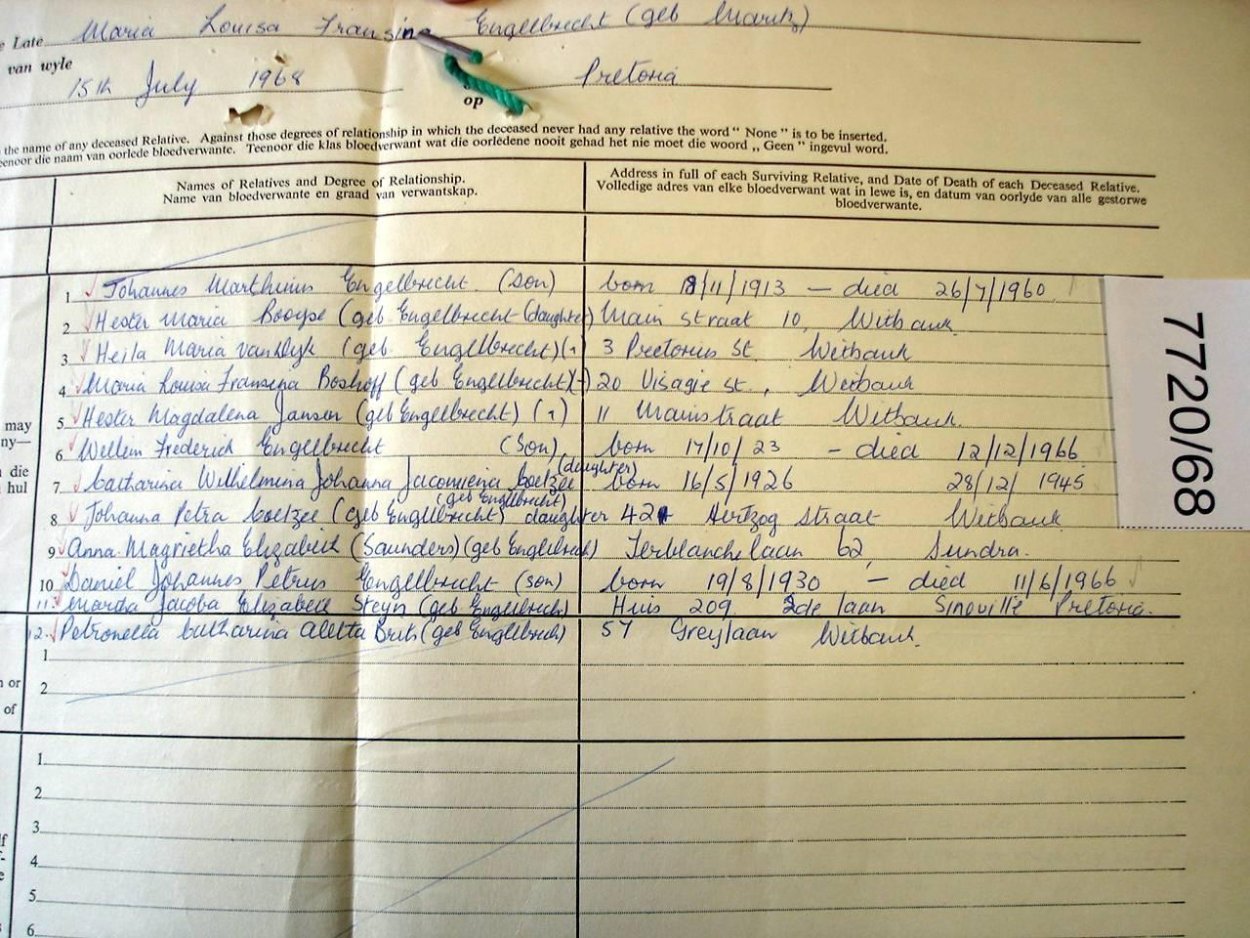 e Late Maria Louisa Fransina Engelbrecht (geb Maritz)
van wyle
15th July 1968 op Pretoria
the name of any deceased Relative. Against those degrees of relationship in which the deceased never had any relative the word " None " is to be inserted.
eenoor die naam van oorlede bloedverwante. Teenoor die klas bloedverwant wat die oorledene nooit gehad het nie moet die woord „ Geen " ingevul word.
Names of Relatives and Degree of Relationship.
Name van bloedverwante en graad van verwantskap.
Address in full of each Surviving Relative, and Date of Death of each Deceased Relative.
Volledige adres van elke bloedverwant wat in lewe is, en datum van oorlyde van alle gestorwe
bloedverwante.
1 Johannes Marthinus Engelbrecht (son) born 18/11/1913 — died 26/7/1960
2 Hester Maria Booyse (geb Engelbrecht (daughter) Main straat 10, Witbank
3 Heila Maria van Dyk (geb Engelbrecht) (") 3 Pretorius St. Witbank
4 Maria Louisa Fransina Boshoff (geb Engelbrecht) (") 20 Visagie st, Witbank
5 Hester Magdalena Jansen (geb Engelbrecht) (") 11 Mainstraat Witbank.
6 Willem Frederich Engelbrecht (Son) born 17/10/23 - died 12/12/1966
(daughter)
7 Catharina Wilhelmina Johanna Jacomiena Coetzee born 16/5/1926 28/12/1945
(geb Engelbrecht)
8 Johanna Petra Coetzee (geb Engelbrecht) daughter 42 Hertzog straat Witbank
9 Anna Magrietha Elizabeth (Saunders) (geb Englebrech) Terblanchelaan 62, Sundra.
10 Daniel Johannes Petrus Engelbrecht (son) born 19/8/1930 — died 11/6/1966
11 Martha Jacoba Elizabeth Steyn (geb Englebrech) Huis 209 2de laan Sinoville Pretoria.
12. Petronella Catharina Aletta Brits (geb Englebrech) 57 Greylaan Witbank.
1
2
1.
2.
3.
4.
5.
6.
may
ny—
die
hul
n or
of
7720/68